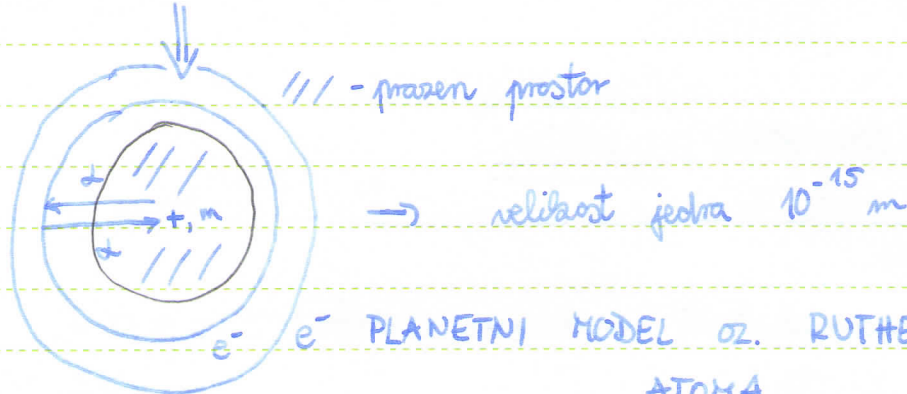 /// - prazen prostor
α
+, m
α
→ velikost jedra 10⁻¹⁵ m
e⁻ e⁻ PLANETNI MODEL oz. RUTHE
ATOMA